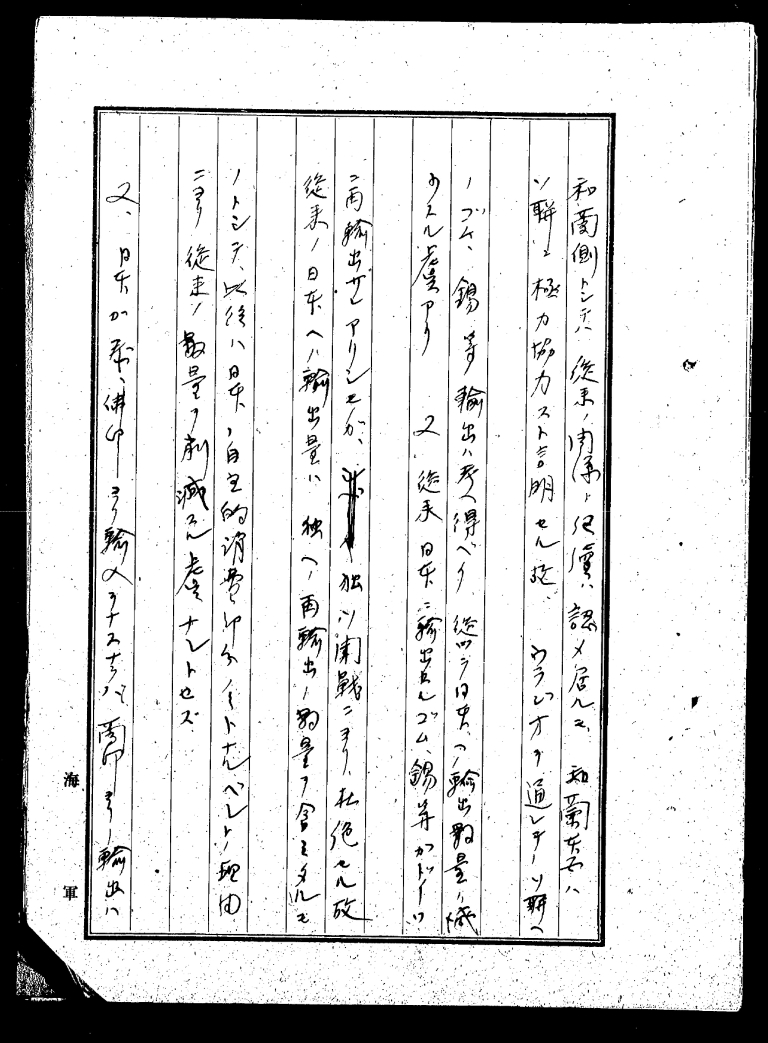 和蘭側トシテハ従来ノ関係ト仕儀ハ認メ居ルモ、和蘭本国ハ
ソ聯ニ極力協力スト言明セル故、ウラジオヲ通レテノソ聯ヘ
ノゴム、錫等輸出ハ考ヘ得ベク、従ツテ日本ヘノ輸出数量ノ減
少スル虞アリ 又従来日本ニ輸出セルゴム、錫等ガドイツ
ニ再輸出ザレアリシモガ、独ソ開戦ニヨリ、杜絶セル故
従来ノ日本ヘノ輸出量ハ独ヘノ再輸出ノ数量ヲ含ミタルモ
ノトシテ、以後ハ日本ノ自主的消費分ノミトナルベシトノ理由
ニヨリ従来ノ数量ヲ削減スル虞ナシトセズ
又、日本ガ泰、佛印ヨリ輸入ヲナスナラバ、蘭印ヨリノ輸出ハ
海軍